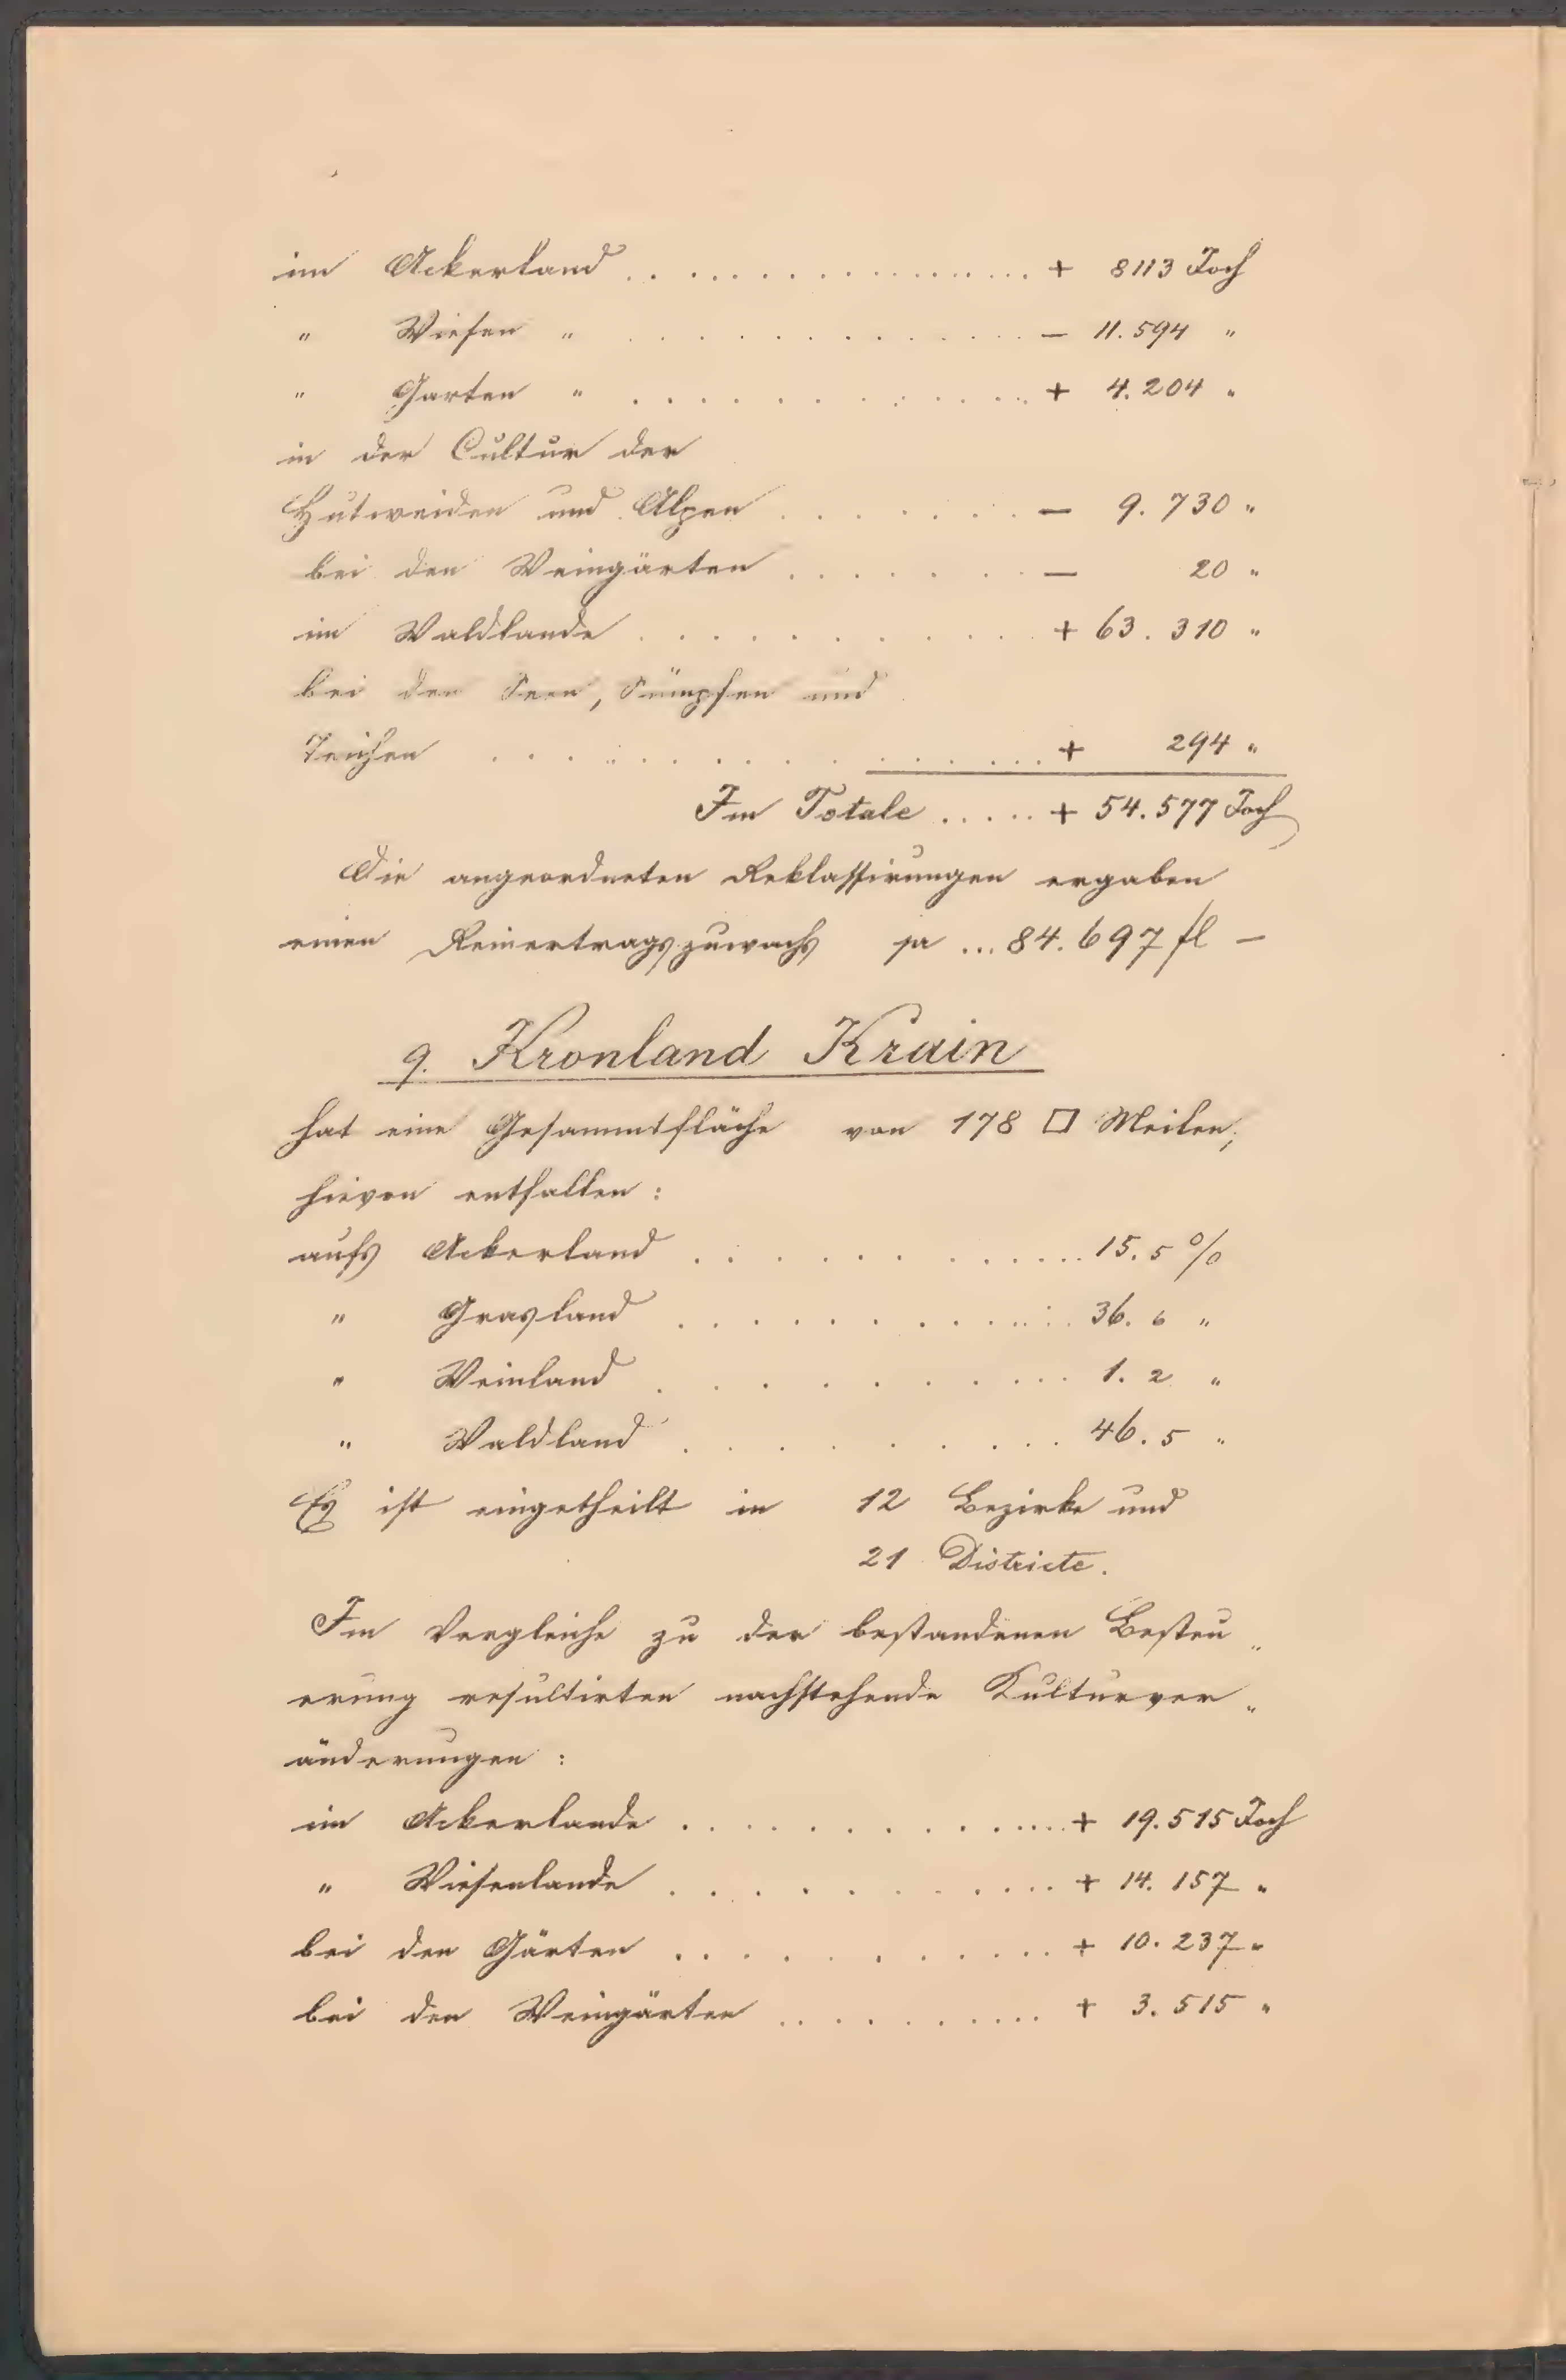 im Ackerland . . . . . . . . . . . . . . . . + 8113 Joch
" Wiesen " . . . . . . . . . . . . . — 11.594 "
" Garten " . . . . . . . . . . . . . + 4.204 "
in der Cultur der
Hutweiden und Alpen . . . . . . . . — 9.730 "
bei den Weingärten . . . . . . . — 20 "
im Waldlande . . . . . . . . . . . . + 63.310 "
bei den Seen, Sümpfen und
Teichen . . . . . . . . . . . . . . . . + 294 "
Im Totale . . . . . + 54.577 Joch
Die angeordneten Reklassirungen ergaben
einen Reinertragszuwachs pr ... 84.697 fl —
9. Kronland Krain
hat eine Gesammtfläche von 178 □ Meilen;
hievon entfallen :
aufs Ackerland . . . . . . . . . . . . 15.5 %
" Grasland . . . . . . . . . . . . . 36.6 "
" Weinland . . . . . . . . . . . 1.2 "
" Waldland . . . . . . . . . . . 46.5 "
Es ist eingetheilt in 12 Bezirke und
21 Districte.
Im Vergleiche zu der bestandenen Besteu„
erung resultirten nachstehende Kulturver„
änderungen :
im Ackerlande . . . . . . . . . . . . . + 19.515 Joch
" Wiesenlande . . . . . . . . . . . . + 14.157 "
bei den Gärten . . . . . . . . . . . . + 10.237 "
bei den Weingärten . . . . . . . . . . + 3.515 "